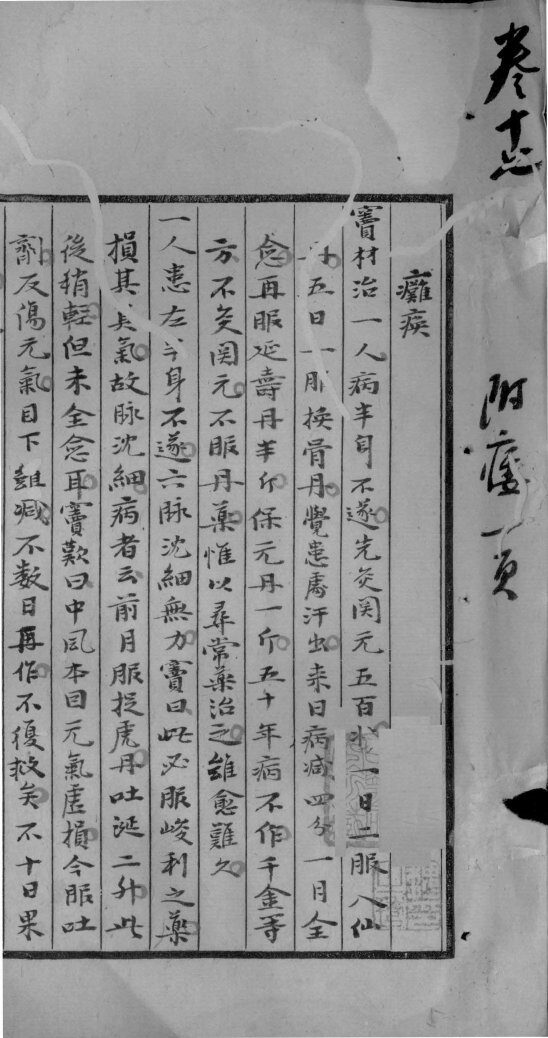 卷十四
附痿一頁
癱瘓
竇材治一人病半身不遂先灸関元五百壯一日二服八仙
丹五日一服換骨丹覺患處汗出來日病減四分一月全
愈再服延壽丹半斤保元丹一斤五十年病不作千金等
方不灸関元不服丹藥惟以尋常藥治之雖愈難久
一人患左半身不遂六脉沈細無力竇曰此必服峻利之藥
損其真氣故脉沈細病者云前月服捉虎丹吐涎二升此
後稍輕但未全愈耳竇歎曰中風本因元氣虛損今服吐
劑反傷元氣目下雖減不數日再作不復救矣不十日果